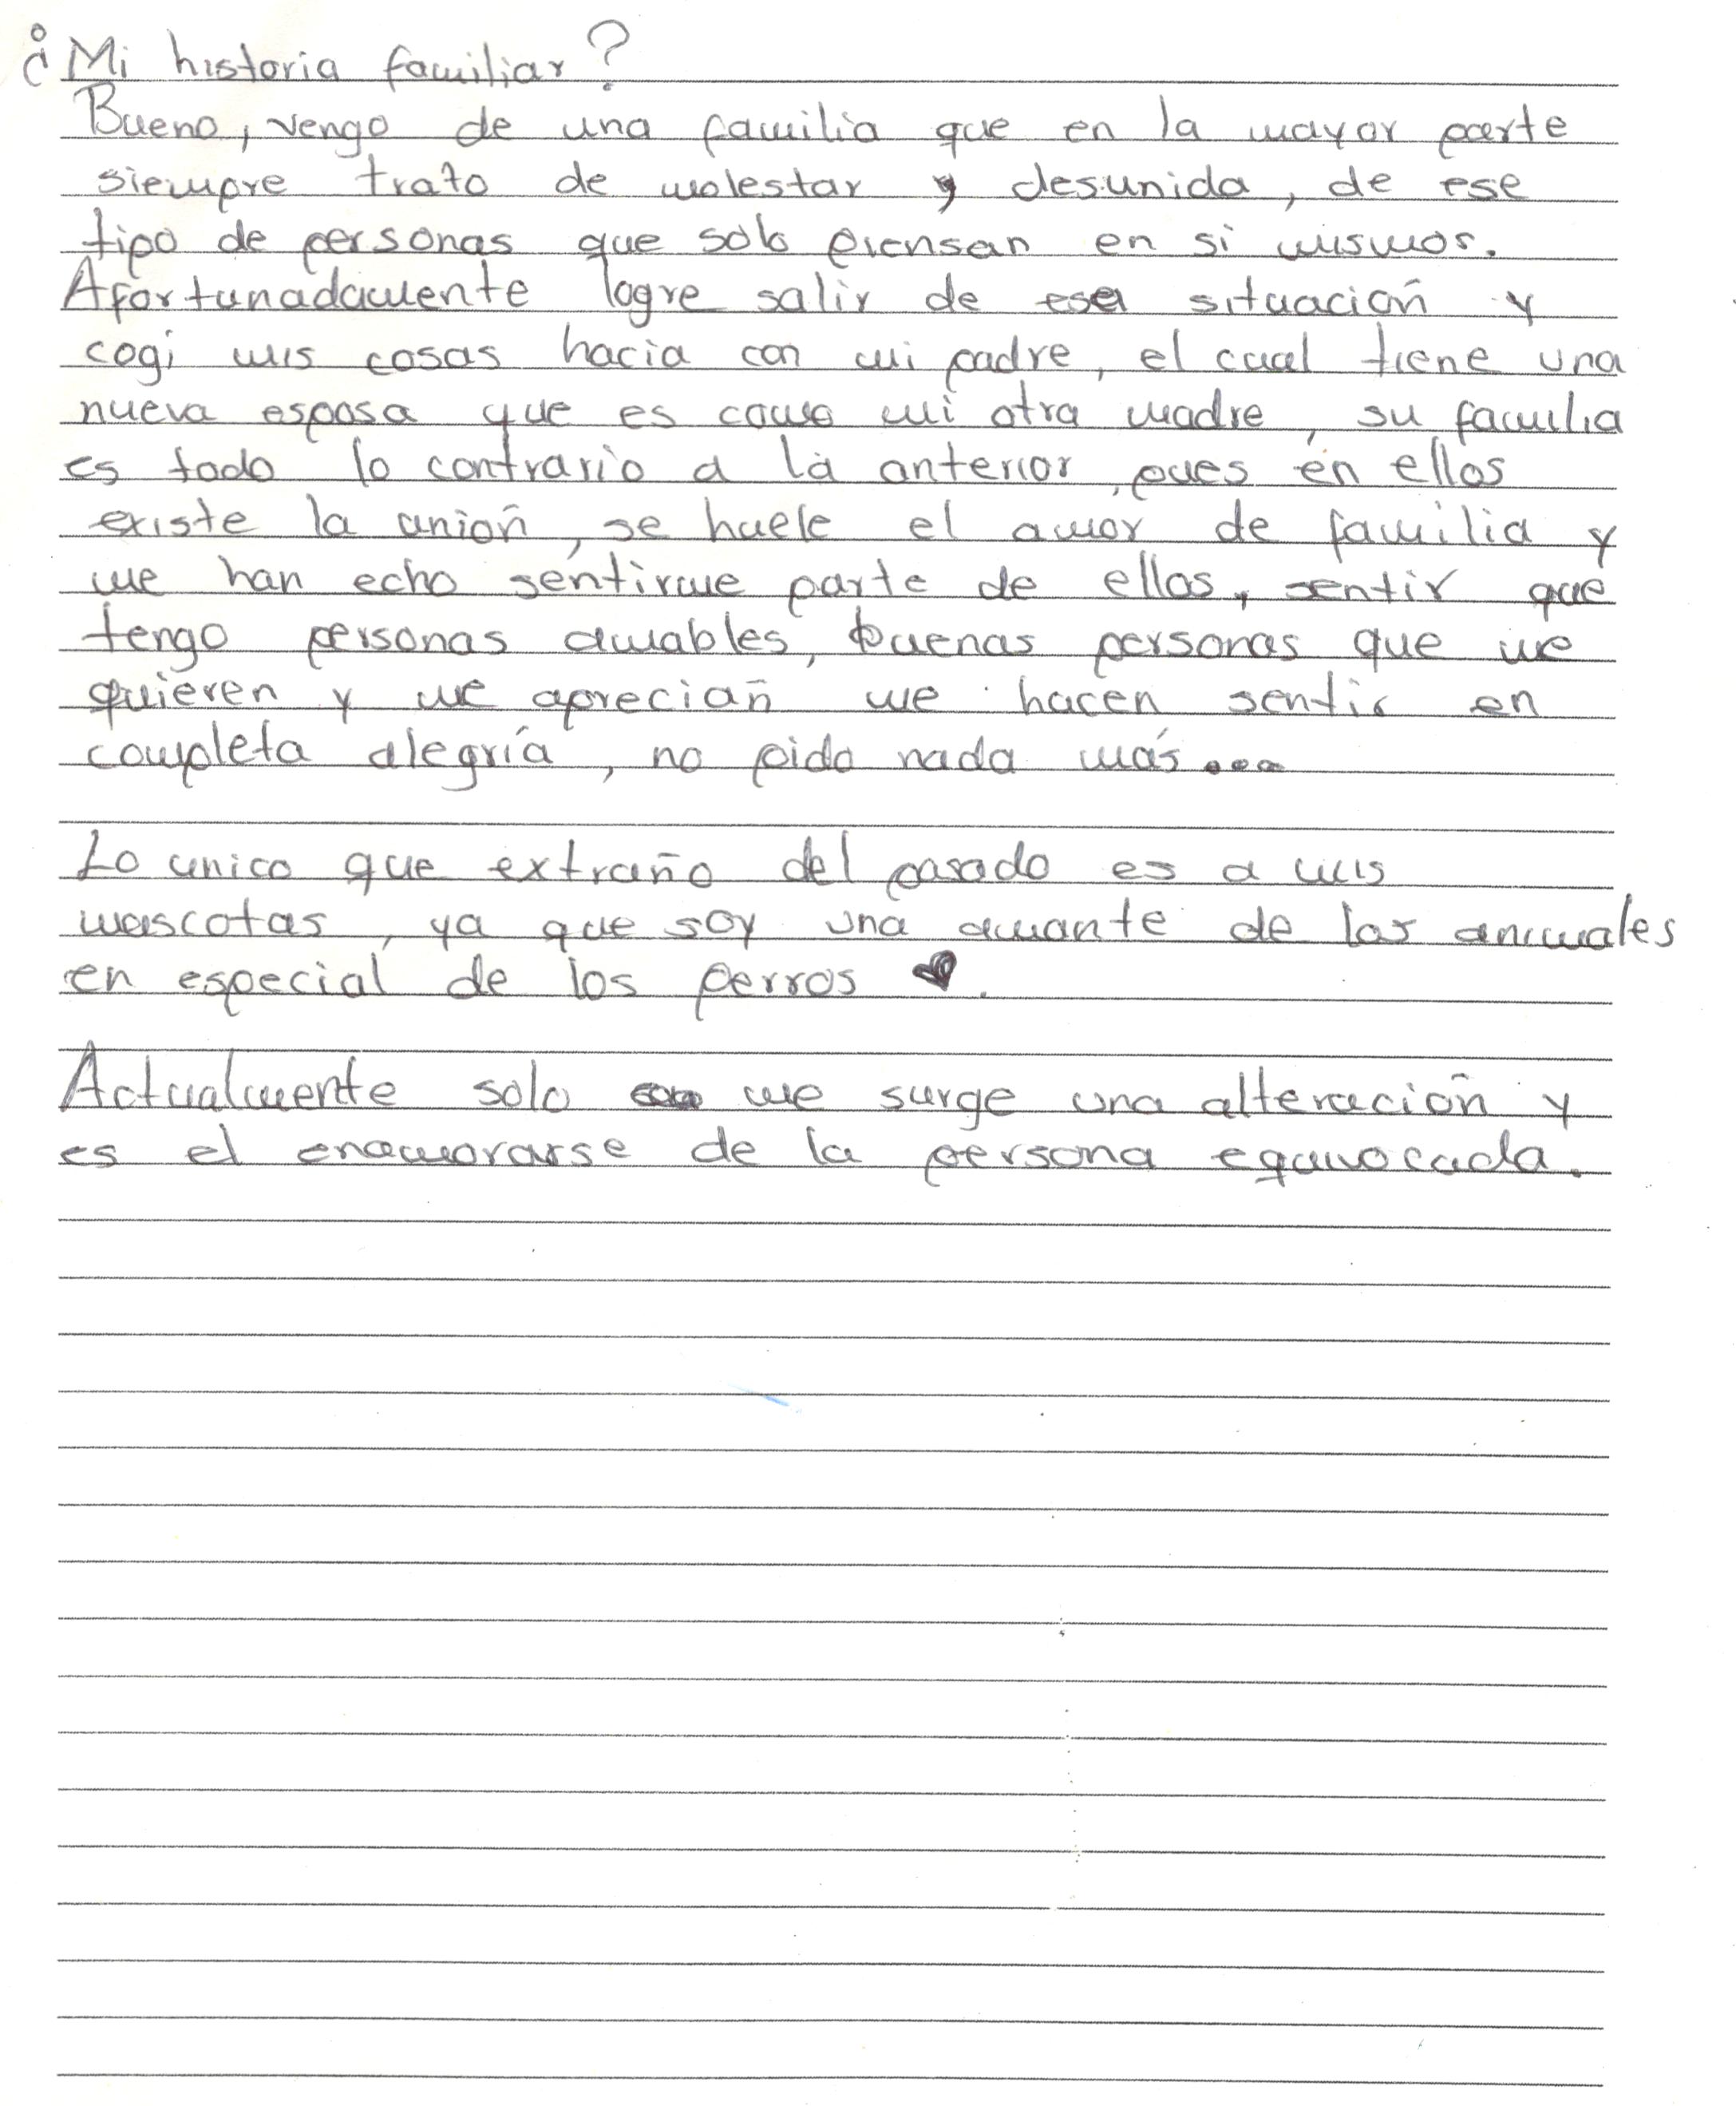 ¿Mi historia familiar?
Bueno, vengo de una familia que en la mayor parte
siempre trato de molestar y desunida, de ese
tipo de personas que solo piensan en si mismos.
Afortunadamente logre salir de esa situación y
cogi mis cosas hacia con mi padre, el cual tiene una
nueva esposa que es como mi otra madre, su familia
es todo lo contrario a la anterior, pues en ellos
existe la unión, se huele el amor de familia y
me han echo sentirme parte de ellos, sentir que
tengo personas amables, buenas personas que me
quieren y me aprecian me hacen sentir en
completa alegría, no pido nada más...
Lo unico que extraño del pasado es a mis
mascotas, ya que soy una amante de los animales
en especial de los perros ♥.
Actualmente solo me surge una alteración y
es el enamorarse de la persona equivocada.